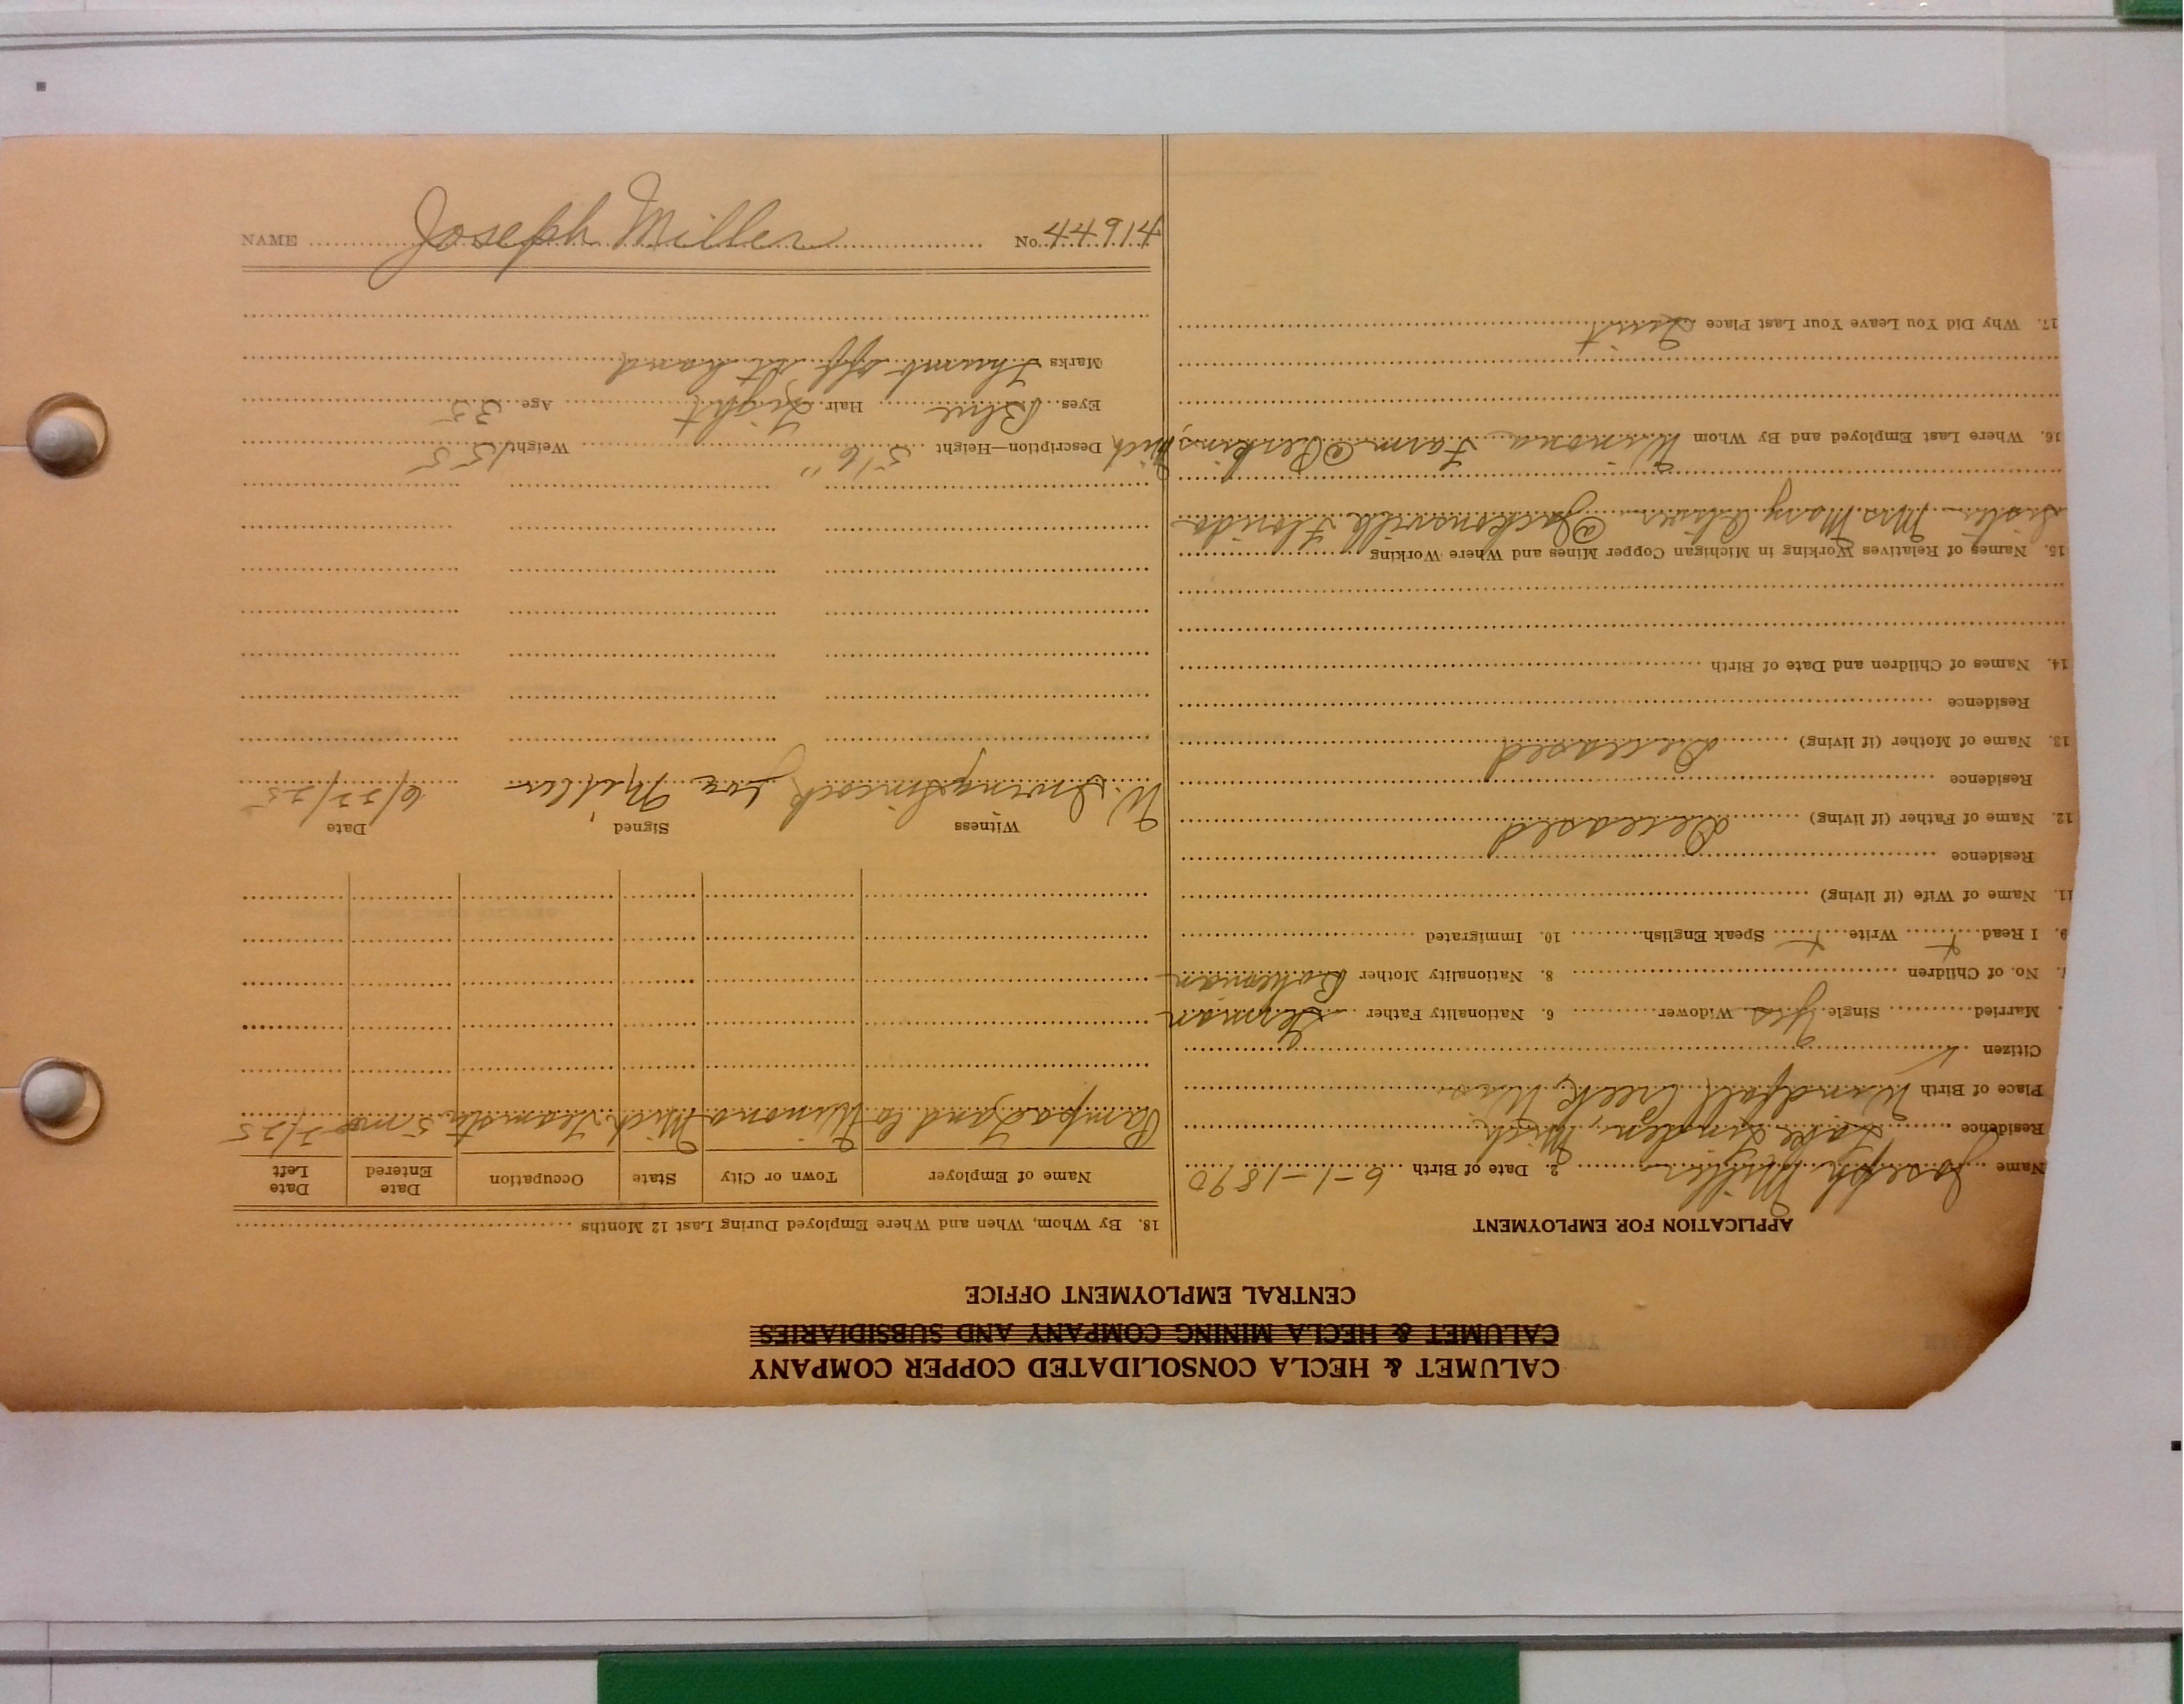 NAME Joseph Miller No. 44914
CALUMET & HECLA CONSOLIDATED COPPER COMPANY
CALUMET & HECLA MINING COMPANY AND SUBSIDIARIES
CENTRAL EMPLOYMENT OFFICE
APPLICATION FOR EMPLOYMENT
Name Joseph Miller 2. Date of Birth 6-1-1890
Residence Lake Linden, Mich
Place of Birth Windfall Creek, Wis
Citizen
Married Single Yes Widower 6. Nationality Father German
No. of Children 8. Nationality Mother Bohemian
9. I Read x Write x Speak English 10. Immigrated
11. Name of Wife (if living)
Residence
12. Name of Father (if living) deceased
Residence
13. Name of Mother (if living) deceased
Residence
14. Names of Children and Date of Birth
15. Names of Relatives Working in Michigan Copper Mines and Where Working
Sister Mrs. Mary @ Jacksonville Florida
16. Where Last Employed and By Whom Winona Farm @ Perkins, Mich
17. Why Did You Leave Your Last Place Quit
18. By Whom, When and Where Employed During Last 12 Months
Name of Employer Town or City State Occupation Date Entered Date Left
Land Co Winona Mich Teamster 5 mo
Witness Signed Date
W. Irving Sincock Joe Miller 6/22/25
Description—Height 5'6" Weight 155
Eyes Blue Hair Light Age 35
Marks Thumb off hand